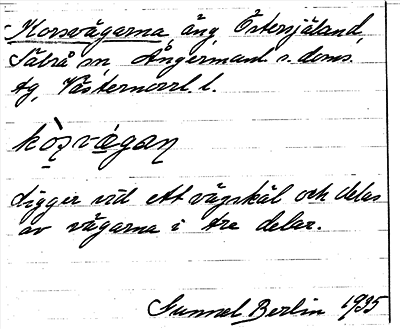 Korsvägarna, äng, Östersjäland,
Säbrå sn, Ångermanl. s. doms.
tg, Västernorrl. l.
kòșvágan
Ligger vid ett vägskäl och delas
av vägarna i tre delar.
Gunnel Berlin 1935